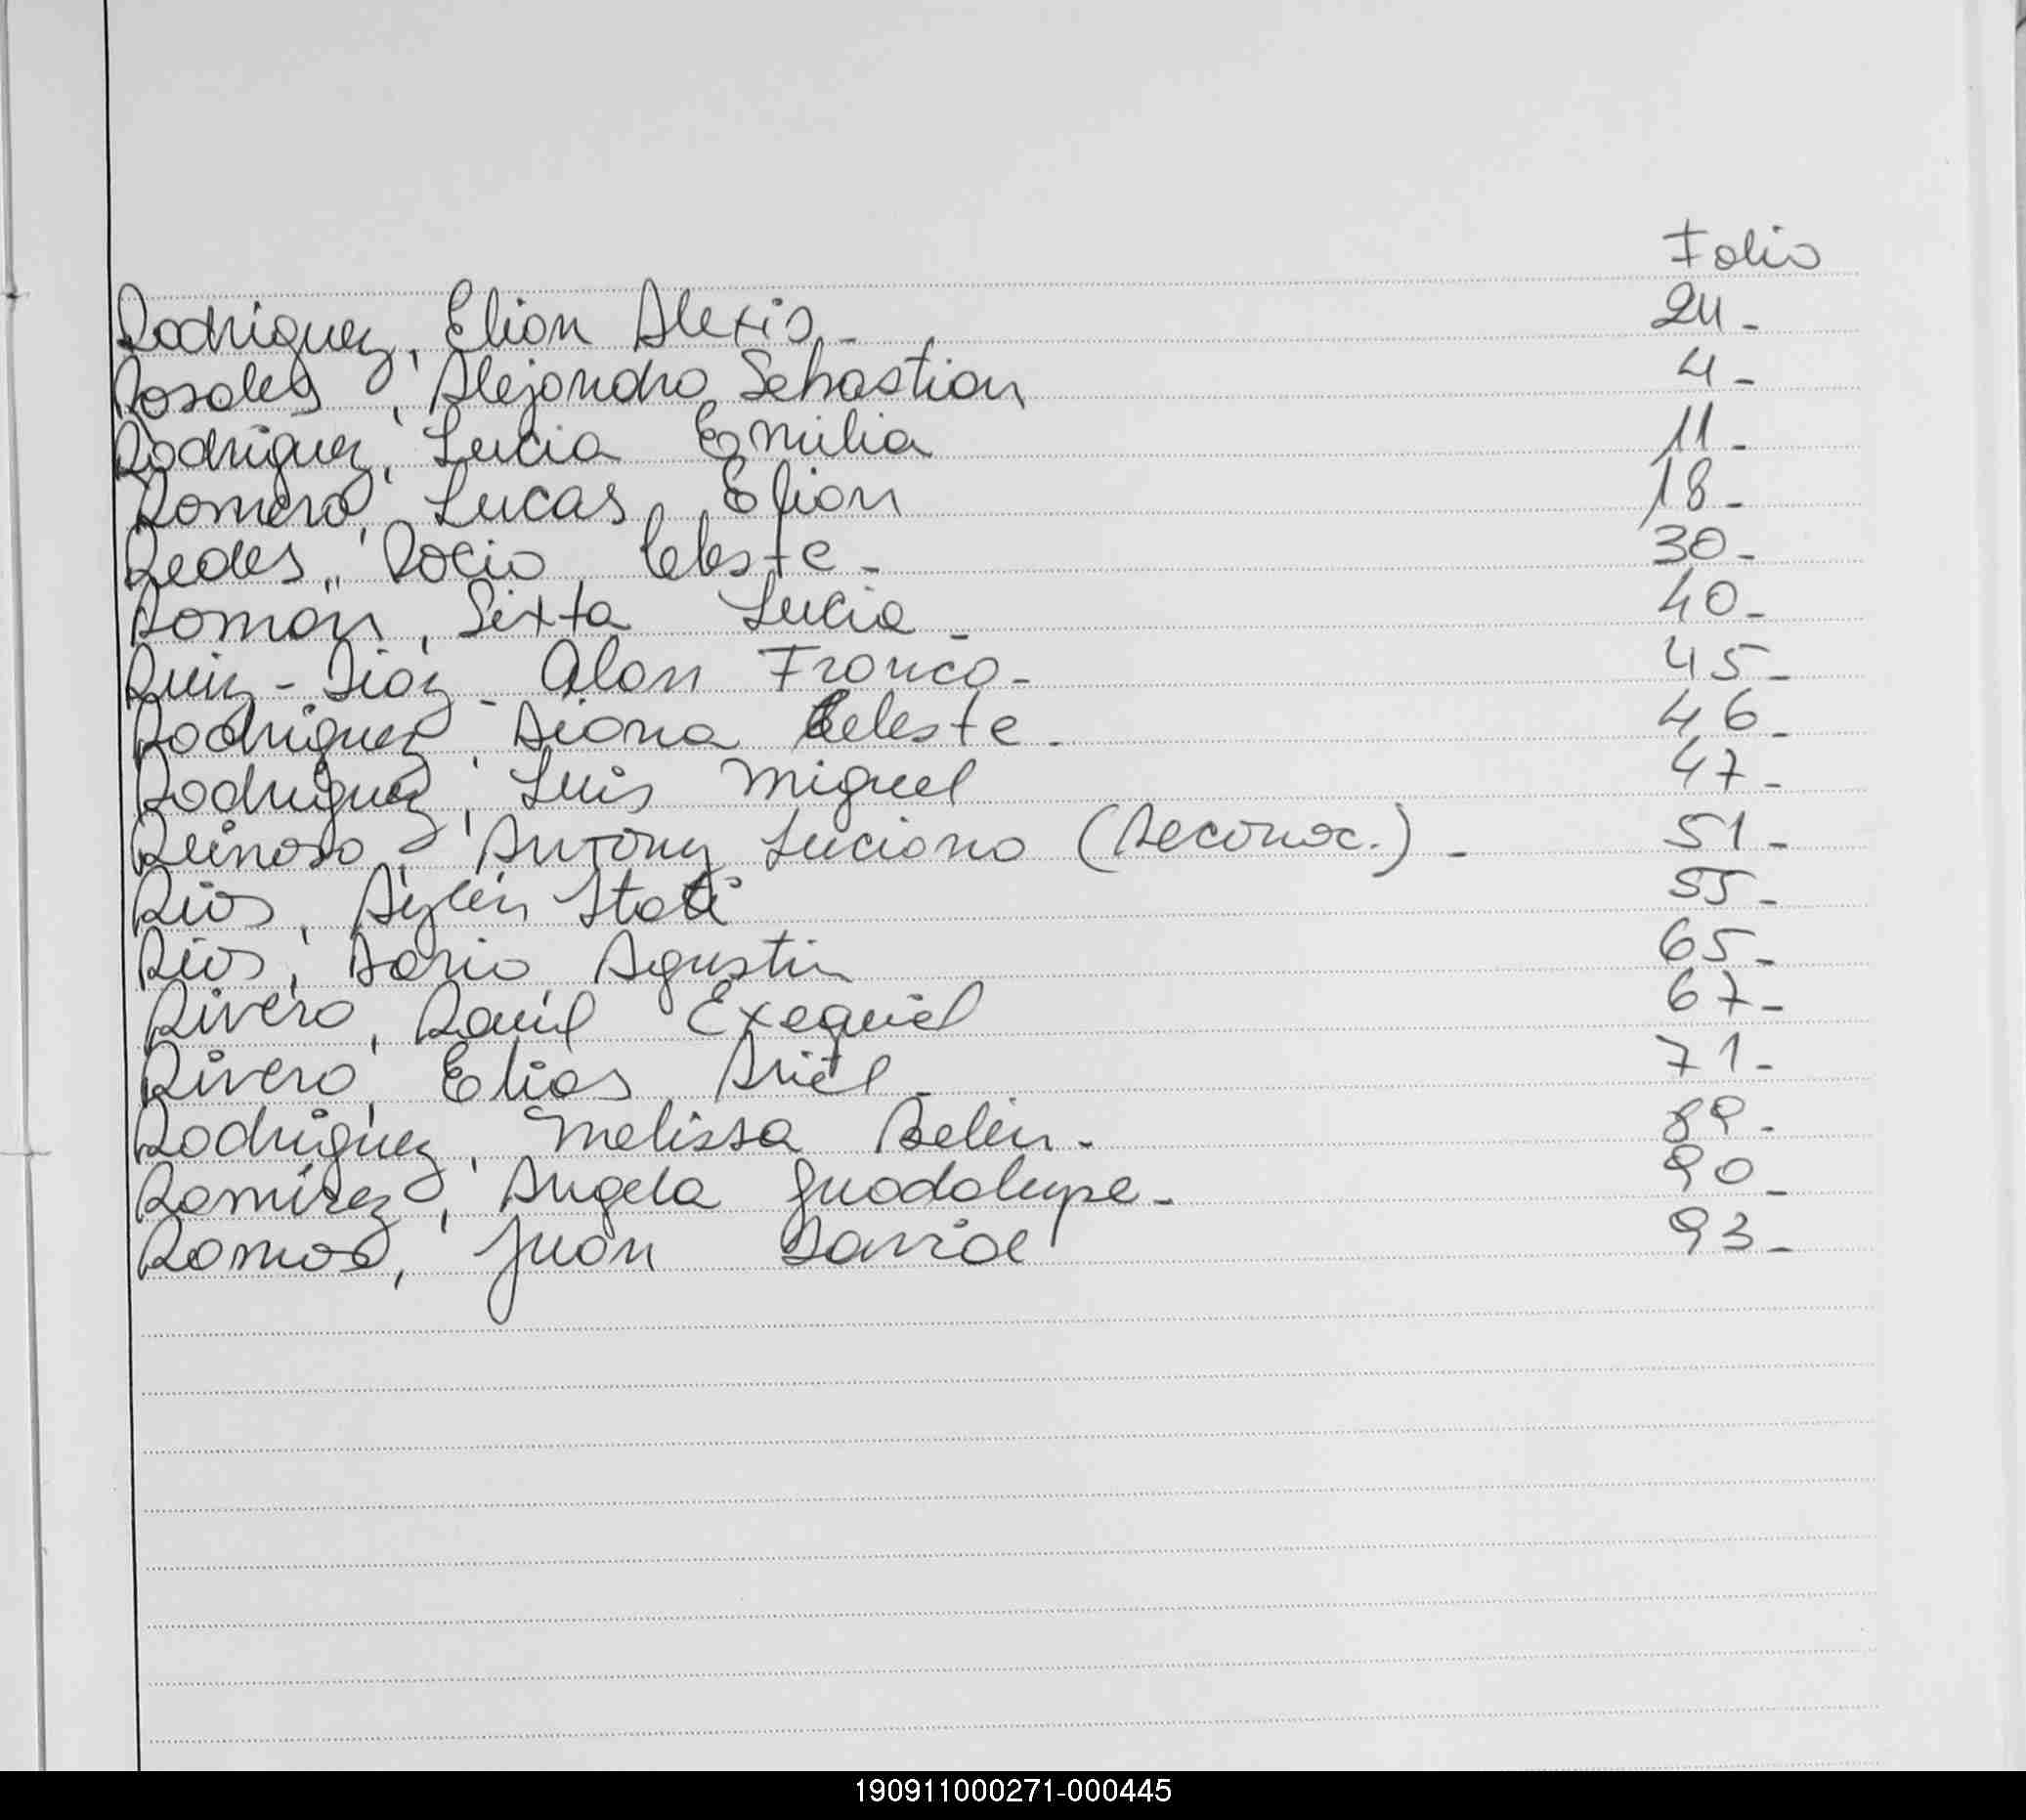 Folio
Rodriguez, Elian Alexis - 24 -
Rosales, Alejandro Sebastian 4 -
Rodriguez, Lucia Emilia 11 -
Romero, Lucas Elian 18 -
Redes, Rocio Celeste - 30 -
Román, Sixta Lucia - 40 -
Ruiz - Diaz - Alan Franco - 45 -
Rodriguez, Diana Celeste - 46 -
Rodriguez, Luis Miguel 47 -
Reinoso, Antony Luciano (Reconoc.) - 51 -
Rios, Aylén Itatí 55 -
Rios, Dario Agustin 65 -
Rivero, Daniel Exequiel 67 -
Rivero, Elias Ariel - 71 -
Rodriguez, Melissa Belén - 89 -
Ramírez, Angela Guadalupe - 90 -
Ramos, Juan David 93 -
190911000271-000445